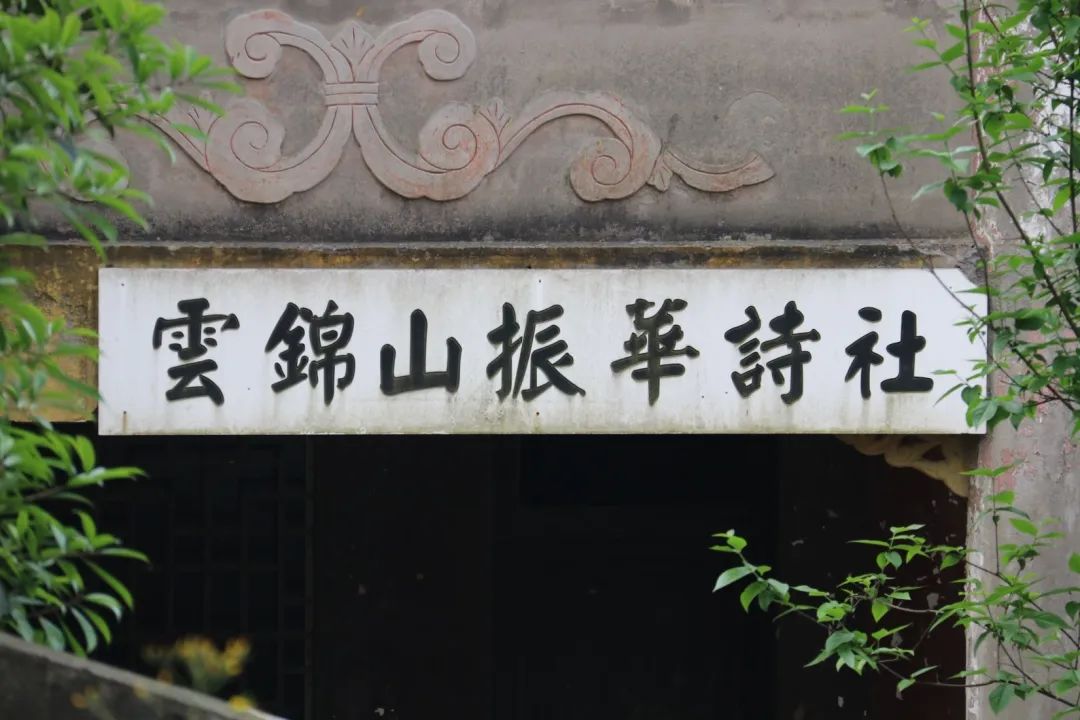 雲錦山振華詩社